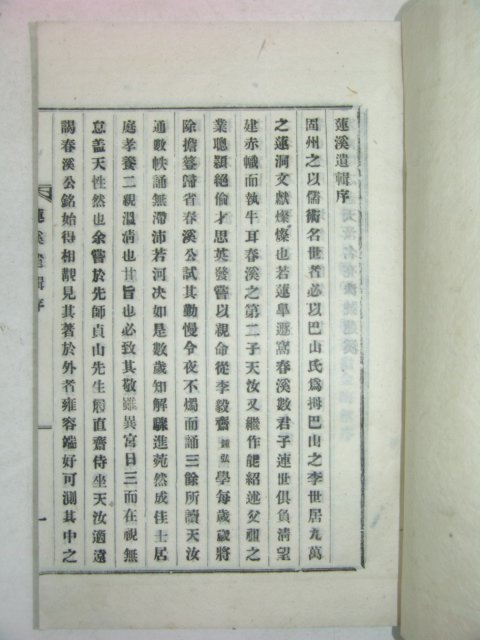 蓮溪遺輯序
固州之以儒術名世者必以巴山氏爲拇巴山之李世居九萬
之蓮洞文獻燦燦也若蓮皐遯窩春溪數君子連世俱負淸望
建赤幟而執牛耳春溪之第二子天汝又繼作能紹述父祖之
業聰穎絕倫才思英發嘗以親命從李毅齋鍾弘學每歲歲將
除擔簦歸省春溪公試其勤慢令夜不燭而誦三餘所讀天汝
通數帙誦無滯沛若河决如是數歲知解驟進菀然成佳士居
庭孝養二親溫凊也甘旨也必致其敬雖異宮日三而在視無
怠盖天性然也余嘗於先師貞山先生 直齋侍坐天汝適遠
謁春溪公銘始得相覿見其著於外者雍容端好可測其中之
蓮溪遺輯序
一